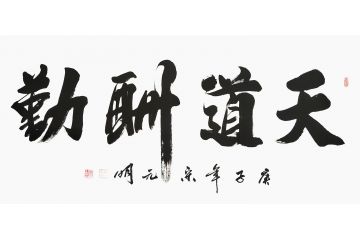 天道酬勤
庚子年宗元明